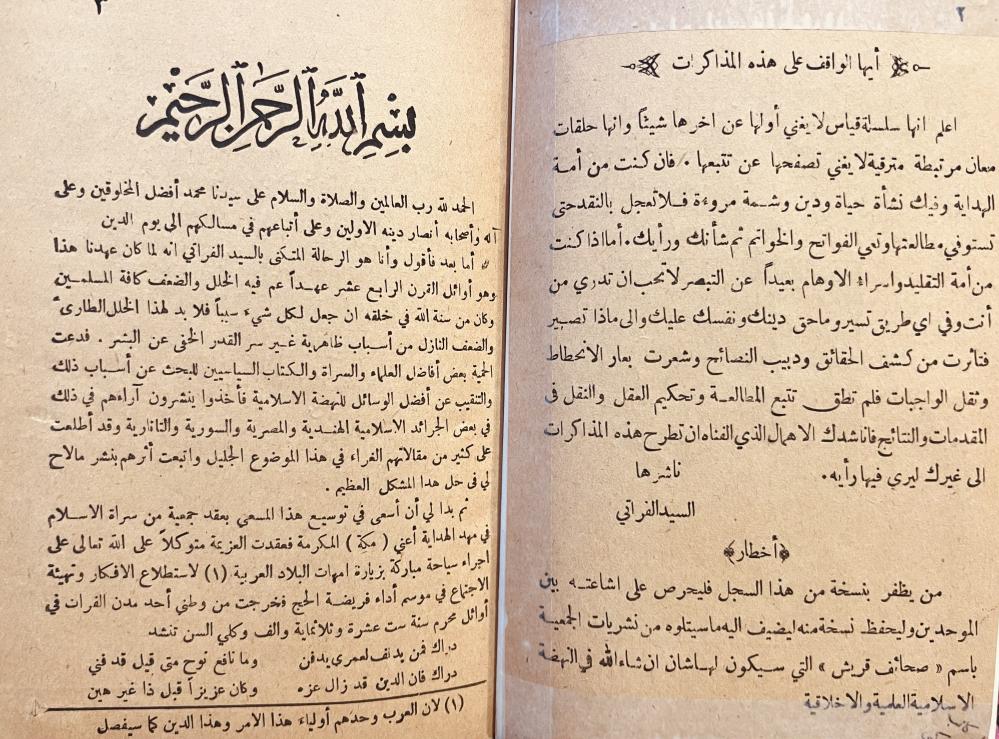 ٢
أيها الواقف على هذه المذاكرات
اعلم انها سلسلة قياس لا يغني أولها عن اخرها شيئاً وانها حلقات
معان مرتبطة مترقية لا يغني تصفحها عن تتبعها . فان كنت من أمة
الهداية وفيك نشأة حياة ودين وشمة مروءة فلا تعجل بالنقد حتى
تستوفي مطالعتها وتعي الفواتح والخواتم ثم شأنك ورأيك . أما اذا كنت
من أمة التقليد واسراء الاوهام بعيداً عن التبصر لا تحب ان تدري من
أنت وفي اي طريق تسير وما حق دينك ونفسك عليك والى ماذا تصير
فتأثرت من كشف الحقائق ودبيب النصائح وشعرت بعار الانحطاط
وثقل الواجبات فلم تطق تتبع المطالعة وتحكيم العقل والنقل في
المقدمات والنتائج فاناشدك الاهمال الذي الفناه ان تطرح هذه المذاكرات
الى غيرك ليرى فيها رأيه .
ناشرها
السيد الفراتي
﴿أخطار﴾
من يظفر بنسخة من هذا السجل فليحرص على اشاعته بين
الموحدين وليحفظ نسخة منه ليضيف اليه ما سيتلوه من نشريات الجمعية
باسم « صحائف قريش » التي سيكون لها شان ان شاء الله في النهضة
الاسلامية العلمية والاخلاقية
٣
بسم الله الرحمن الرحيم
الحمد لله رب العالمين والصلاة والسلام على سيدنا محمد أفضل المخلوقين وعلى
آله وأصحابه أنصار دينه الاولين وعلى أتباعهم في مسالكهم الى يوم الدين
أما بعد فأقول وأنا هو الرحالة المتكنى بالسيد الفراتي انه لما كان عهدنا هذا
وهو أوائل القرن الرابع عشر عهداً عم فيه الخلل والضعف كافة المسلمين
وكان من سنة الله في خلقه ان جعل لكل شيء سبباً فلا بد لهذا الخلل الطارئ
والضعف النازل من أسباب ظاهرية غير سر القدر الخفي عن البشر . فدعت
الحمية بعض أفاضل العلماء والسراة والكتاب السياسيين للبحث عن أسباب ذلك
والتنقيب عن أفضل الوسائل للنهضة الاسلامية فأخذوا ينشرون آراءهم في ذلك
في بعض الجرائد الاسلامية الهندية والمصرية والسورية والتاتارية وقد أطلعت
على كثير من مقالاتهم الغراء في هذا الموضوع الجليل واتبعت أثرهم بنشر مالاح
لي في حل هدا المشكل العظيم .
ثم بدا لي أن أسعى في توسيع هذا المسعي بعقد جمعية من سراة الاسلام
في مهد الهداية أعني ( مكة ) المكرمة فعقدت العزيمة متوكلاً على الله تعالى على
اجراء سياحة مباركة بزيارة امهات البلاد العربية (١) لاستطلاع الافكار وتهيئة
الاجتماع في موسم أداء فريضة الحج فخرجت من وطني أحد مدن الفرات في
أوائل محرم سنة ست عشرة وثلاثماية والف وكلي السن تنشد
دراك فمن يدنف لعمري يدفن وما نافع نوح متى قيل قد فني
دراك فان الدين قد زال عزه وكان عزيزاً قبل ذا غير هين
(١) لان العرب وحدهم أولياء هذا الامر وهذا الدين كما سيفصل